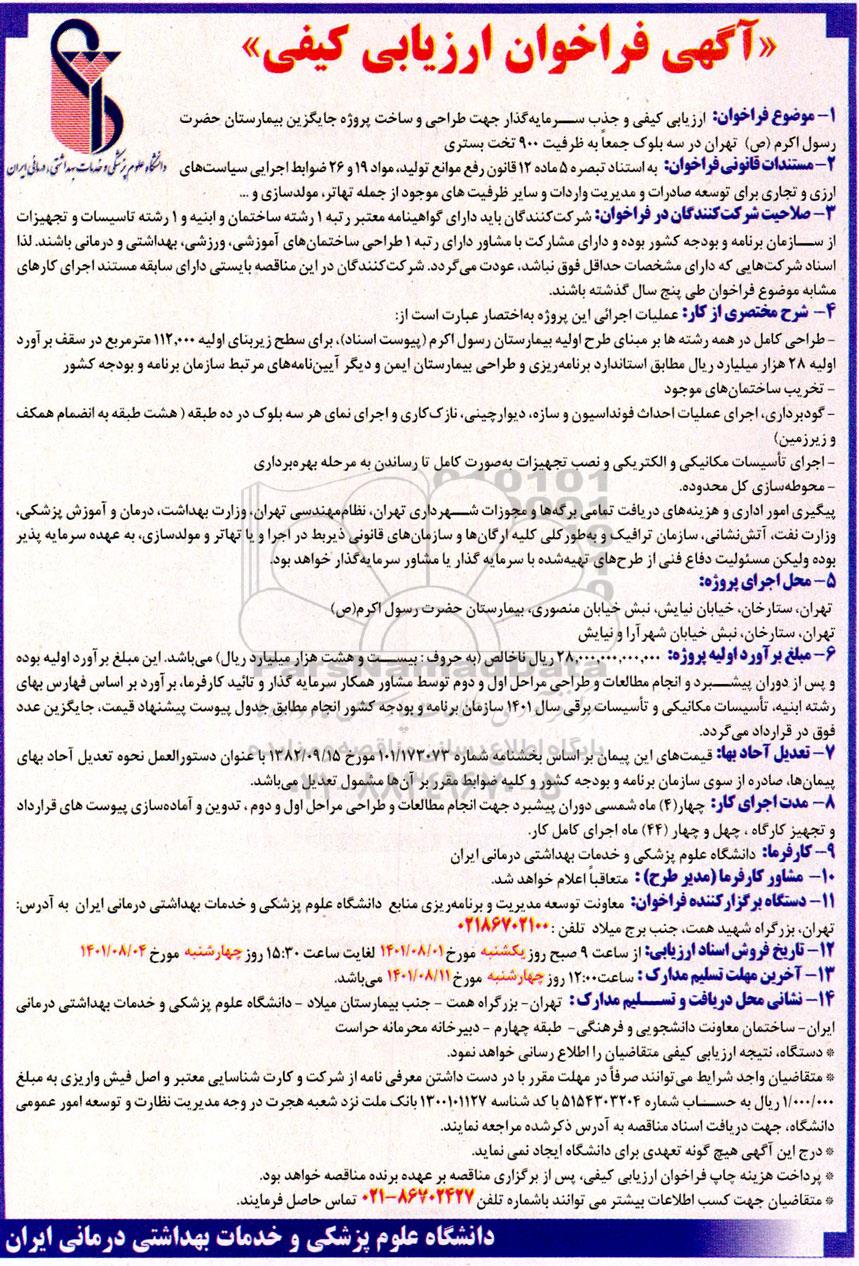 «آگهی فراخوان ارزیابی کیفی»
دانشگاه علوم پزشکی و خدمات بهداشتی، درمانی ایران
۱- موضوع فراخوان: ارزیابی کیفی و جذب سرمایه‌گذار جهت طراحی و ساخت پروژه جایگزین بیمارستان حضرت
رسول اکرم (ص) تهران در سه بلوک جمعاً به ظرفیت ۹۰۰ تخت بستری
۲- مستندات قانونی فراخوان: به استناد تبصره ۵ ماده ۱۲ قانون رفع موانع تولید، مواد ۱۹ و ۲۶ ضوابط اجرایی سیاست‌های
ارزی و تجاری برای توسعه صادرات و مدیریت واردات و سایر ظرفیت های موجود از جمله تهاتر، مولدسازی و ...
۳- صلاحیت شرکت‌کنندگان در فراخوان: شرکت‌کنندگان باید دارای گواهینامه معتبر رتبه ۱ رشته ساختمان و ابنیه و ۱ رشته تاسیسات و تجهیزات
از سازمان برنامه و بودجه کشور بوده و دارای مشارکت با مشاور دارای رتبه ۱ طراحی ساختمان‌های آموزشی، ورزشی، بهداشتی و درمانی باشند. لذا
اسناد شرکت‌هایی که دارای مشخصات حداقل فوق نباشد، عودت می‌گردد. شرکت‌کنندگان در این مناقصه بایستی دارای سابقه مستند اجرای کارهای
مشابه موضوع فراخوان طی پنج سال گذشته باشند.
۴- شرح مختصری از کار: عملیات اجرائی این پروژه به‌اختصار عبارت است از:
- طراحی کامل در همه رشته ها بر مبنای طرح اولیه بیمارستان رسول اکرم (پیوست اسناد)، برای سطح زیربنای اولیه ۱۱۲,۰۰۰ مترمربع در سقف برآورد
اولیه ۲۸ هزار میلیارد ریال مطابق استاندارد برنامه‌ریزی و طراحی بیمارستان ایمن و دیگر آیین‌نامه‌های مرتبط سازمان برنامه و بودجه کشور
- تخریب ساختمان‌های موجود
- گودبرداری، اجرای عملیات احداث فونداسیون و سازه، دیوارچینی، نازک‌کاری و اجرای نمای هر سه بلوک در ده طبقه ( هشت طبقه به انضمام همکف
و زیرزمین)
- اجرای تأسیسات مکانیکی و الکتریکی و نصب تجهیزات به‌صورت کامل تا رساندن به مرحله بهره‌برداری
- محوطه‌سازی کل محدوده.
پیگیری امور اداری و هزینه‌های دریافت تمامی برگه‌ها و مجوزات شهرداری تهران، نظام‌مهندسی تهران، وزارت بهداشت، درمان و آموزش پزشکی،
وزارت نفت، آتش‌نشانی، سازمان ترافیک و به‌طورکلی کلیه ارگان‌ها و سازمان‌های قانونی ذیربط در اجرا و یا تهاتر و مولدسازی، به عهده سرمایه پذیر
بوده ولیکن مسئولیت دفاع فنی از طرح‌های تهیه‌شده با سرمایه گذار یا مشاور سرمایه‌گذار خواهد بود.
۵- محل اجرای پروژه:
تهران، ستارخان، خیابان نیایش، نبش خیابان منصوری، بیمارستان حضرت رسول اکرم(ص)
تهران، ستارخان، نبش خیابان شهرآرا و نیایش
۶- مبلغ برآورد اولیه پروژه: ۲۸,۰۰۰,۰۰۰,۰۰۰,۰۰۰ ریال ناخالص (به حروف: بیست و هشت هزار میلیارد ریال) می‌باشد. این مبلغ برآورد اولیه بوده
و پس از دوران پیشبرد و انجام مطالعات و طراحی مراحل اول و دوم توسط مشاور همکار سرمایه گذار و تائید کارفرما، برآورد بر اساس فهارس بهای
رشته ابنیه، تأسیسات مکانیکی و تأسیسات برقی سال ۱۴۰۱ سازمان برنامه و بودجه کشور انجام مطابق جدول پیوست پیشنهاد قیمت، جایگزین عدد
فوق در قرارداد می‌گردد.
۷- تعدیل آحاد بها: قیمت‌های این پیمان بر اساس بخشنامه شماره ۱۰۱/۱۷۳۰۷۳ مورخ ۱۳۸۲/۰۹/۱۵ با عنوان دستورالعمل نحوه تعدیل آحاد بهای
پیمان‌ها، صادره از سوی سازمان برنامه و بودجه کشور و کلیه ضوابط مقرر بر آن‌ها مشمول تعدیل می‌باشد.
۸- مدت اجرای کار: چهار(۴) ماه شمسی دوران پیشبرد جهت انجام مطالعات و طراحی مراحل اول و دوم ، تدوین و آماده‌سازی پیوست های قرارداد
و تجهیز کارگاه ، چهل و چهار (۴۴) ماه اجرای کامل کار.
۹- کارفرما: دانشگاه علوم پزشکی و خدمات بهداشتی درمانی ایران
۱۰- مشاور کارفرما (مدیر طرح) : متعاقباً اعلام خواهد شد.
۱۱- دستگاه برگزارکننده فراخوان: معاونت توسعه مدیریت و برنامه‌ریزی منابع دانشگاه علوم پزشکی و خدمات بهداشتی درمانی ایران به آدرس:
تهران، بزرگراه شهید همت، جنب برج میلاد تلفن : ۰۲۱۸۶۷۰۲۱۰۰
۱۲- تاریخ فروش اسناد ارزیابی: از ساعت ۹ صبح روز یکشنبه مورخ ۱۴۰۱/۰۸/۰۱ لغایت ساعت ۱۵:۳۰ روز چهارشنبه مورخ ۱۴۰۱/۰۸/۰۴
۱۳- آخرین مهلت تسلیم مدارک : ساعت ۱۲:۰۰ روز چهارشنبه مورخ ۱۴۰۱/۰۸/۱۱ می‌باشد.
۱۴- نشانی محل دریافت و تسلیم مدارک : تهران- بزرگراه همت - جنب بیمارستان میلاد - دانشگاه علوم پزشکی و خدمات بهداشتی درمانی
ایران- ساختمان معاونت دانشجویی و فرهنگی- طبقه چهارم - دبیرخانه محرمانه حراست
* دستگاه، نتیجه ارزیابی کیفی متقاضیان را اطلاع رسانی خواهد نمود.
* متقاضیان واجد شرایط می‌توانند صرفاً در مهلت مقرر با در دست داشتن معرفی نامه از شرکت و کارت شناسایی معتبر و اصل فیش واریزی به مبلغ
۱/۰۰۰/۰۰۰ ریال به حساب شماره ۵۱۵۴۳۰۳۲۰۴ با کد شناسه ۱۳۰۰۱۰۱۱۲۷ بانک ملت نزد شعبه هجرت در وجه مدیریت نظارت و توسعه امور عمومی
دانشگاه، جهت دریافت اسناد مناقصه به آدرس ذکرشده مراجعه نمایند.
* درج این آگهی هیچ گونه تعهدی برای دانشگاه ایجاد نمی نماید.
* پرداخت هزینه چاپ فراخوان ارزیابی کیفی، پس از برگزاری مناقصه بر عهده برنده مناقصه خواهد بود.
* متقاضیان جهت کسب اطلاعات بیشتر می توانند باشماره تلفن ۰۲۱-۸۶۷۰۲۴۲۷ تماس حاصل فرمایند.
دانشگاه علوم پزشکی و خدمات بهداشتی درمانی ایران